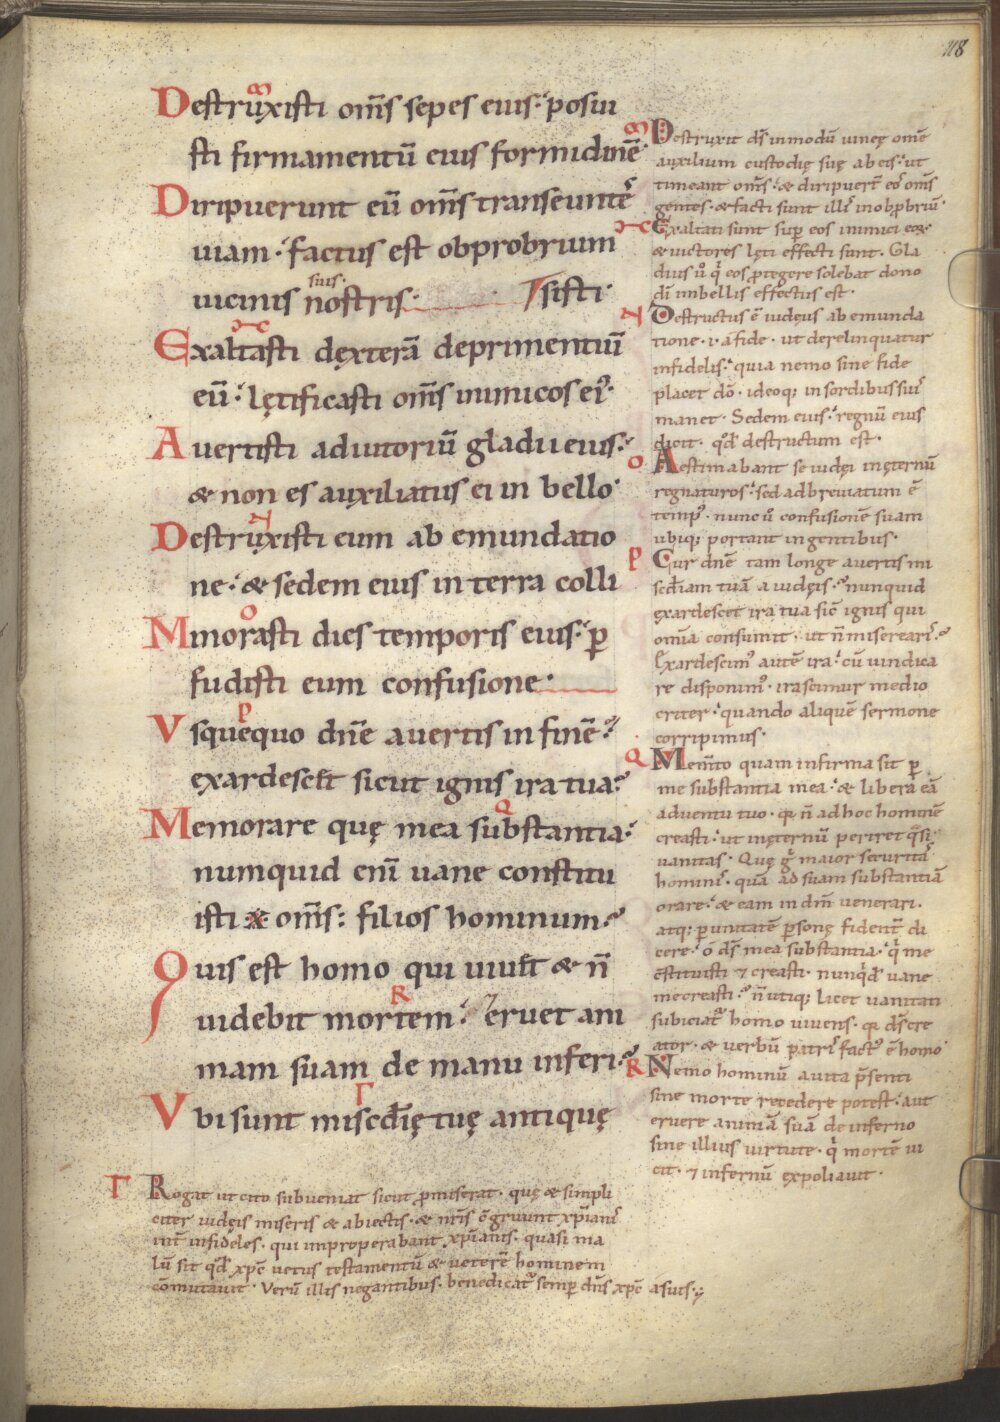 118
Destruxisti om̄s sepes eius· posui
sti firmamentū eius formidinē·
Diripuerunt eū om̄s transeuntes
uiam· factus est obprobrium
suis·
uicinis nostris· sisti·
Exaltasti dęxterā deprimentiū
eū· lętificasti om̄s inimicos ei᾿·
Auertisti adiutoriū gladii eius·
& non es auxiliatus ei in bello·
Destruxisti eum ab emundatio
ne· & sedem eius in terra colli
Minorasti dies temporis eius· ꝑ
fudisti eum confusione·
Vsquequo dn̄e auertis in finē·
exardescet̄ sicut ignis ira tua·
Memorare quę mea substantia·
numquid eni᷎ uane constitu
isti om̄s· filios hominum·
Quis est homo qui uiuit & n̄
uidebit mortem· eruet ani
mam suam de manu inferi·
Vbi sunt misc̄dię tuę antiquę
Destruxit d̄s inmodū uineę omē
auxilium custodię suę ab eis· ut
timeant om̄s· & diripuer̄t eos om̄s
gentes· & facti sunt illis in obꝓbriū·
Exaltati sunt suꝑ eos inimici eoꝝ·
& uictores lęti effecti sunt. Gla
dius u̾ q̓ eos ꝓtegere solebat dono
dī imbellis effectus est·
Destructus ē iudęus ab emunda
tione· i· a fide· ut derelinquatur
infidelis· quia nemo sine fide
placet dō· ideoq; in sordibus suis
manet· Sedem eius· regnū eius
dicit· qd̄ destructum est·
Aestimabant se iudęi in ęternū
regnaturos· sed adbreuiatum ē
temp᾿· nunc u̾ confusionē suam
ubiq; portant in gentibus·
Cur dn̄e tam longe auertis mi
sc̄diam tuā a iudęis· nunquid
exardescet ira tua sic̄ ignis qui
omīa consumit· ut n̄ miserearis·
Exardescim᾿ autē ira· cū uindica
re disponim᾿· irascimur medio
criter· quando aliquē sermone
corripimus·
Mem̄to quam infirma sit ꝑ
me substantia mea· & libera eā
aduentu tuo· q̄ n̄ ad hoc hominē
creasti· ut in ęternū periret q̄si
uanitas· Quę g̓ maior securitas
hominis· quā ad suam substantiā
orare· & eam in dn̄m uenerari·
atq; ꝑ unitatē ꝑsonę fident̄ di
cere· ō d̄s mea substantia· q̓ me
c̄stituisti ⁊ creasti· nunqd̄ uane
me creasti· n̄ utiq; licet uanitati
subiciat᾿ homo uiuens· q̄ d̄s cre
ator· & uerbū patris fact᾿ ē homo·
Nemo hominū a uita p̄senti
sine morte recedere potest· aut
eruere animā suā de inferno
sine illius uirtute· q̓ mortē ui
cit· ⁊ infernū expoliauit·
Γ Rogat ut cito subueniat sicut ꝓmiserat· quę & simpli
citer iudęis miseris & abiectis· & nr̄is c̄gruunt xp̄ianis
int̄ infideles· qui improperabant xp̄ianis· quasi ma
lū sit qd̄ xp̄c uetus testamentū & ueterē hominem
cōmutauit· Verū illis negantibus· benedicat᾿ semꝑ dn̄s xp̄c a suis·